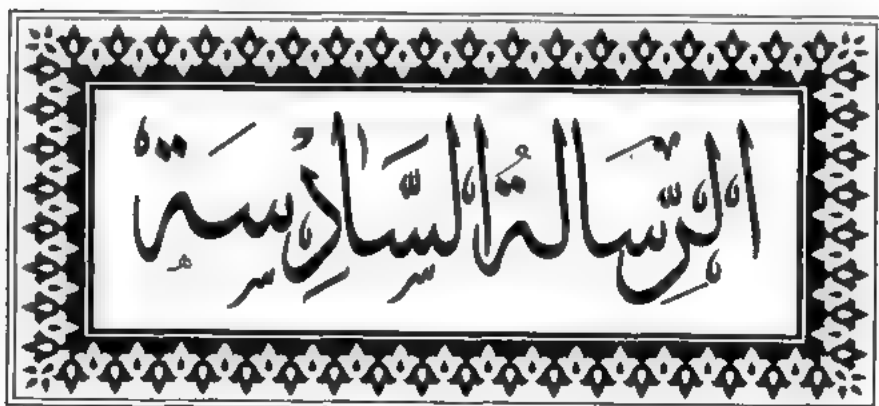 الرِّسَالَةُ السَّادِسَةُ